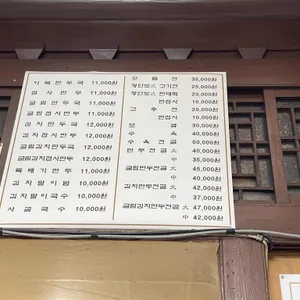 이북만두국 11,000원
접시만두 11,000원
굴림만두국 11,000원
굴림접시만두 11,000원
김치만두국 12,000원
김치접시만두 12,000원
굴림김치만두국 12,000원
굴림김치접시만두 12,000원
뚝배기만두 11,000원
김치말이밥 10,000원
김치말이국수 10,000원
사골국수 10,000원
모듬전 35,000원
평안도式 고기전 25,000원
평안도式 빈대떡 20,000원
반접시 10,000원
고추전 20,000원
반접시 10,000원
모결 30,000원
수육 40,000원
수육전골 50,000원
만두전골 大 40,000원
中 35,000원
굴림만두전골 大 45,000원
中 40,000원
김치만두전골 大 42,000원
中 37,000원
굴림김치만두전골 大 47,000원
中 42,000원